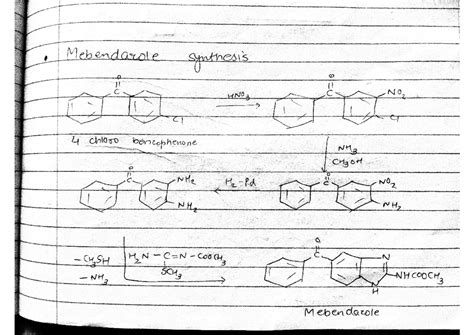 • Mebendazole synthesis
O
C
Cl
HNO3
O
C
NO2
Cl
4 chloro benzophenone
NH3
CH3OH
O
C
NH2
NH2
H2-Pd
O
C
NO2
NH2
-CH3SH
-NH3
H2N-C=N-COOCH3
SCH3
O
C
N
N
H
NHCOOCH3
Mebendazole